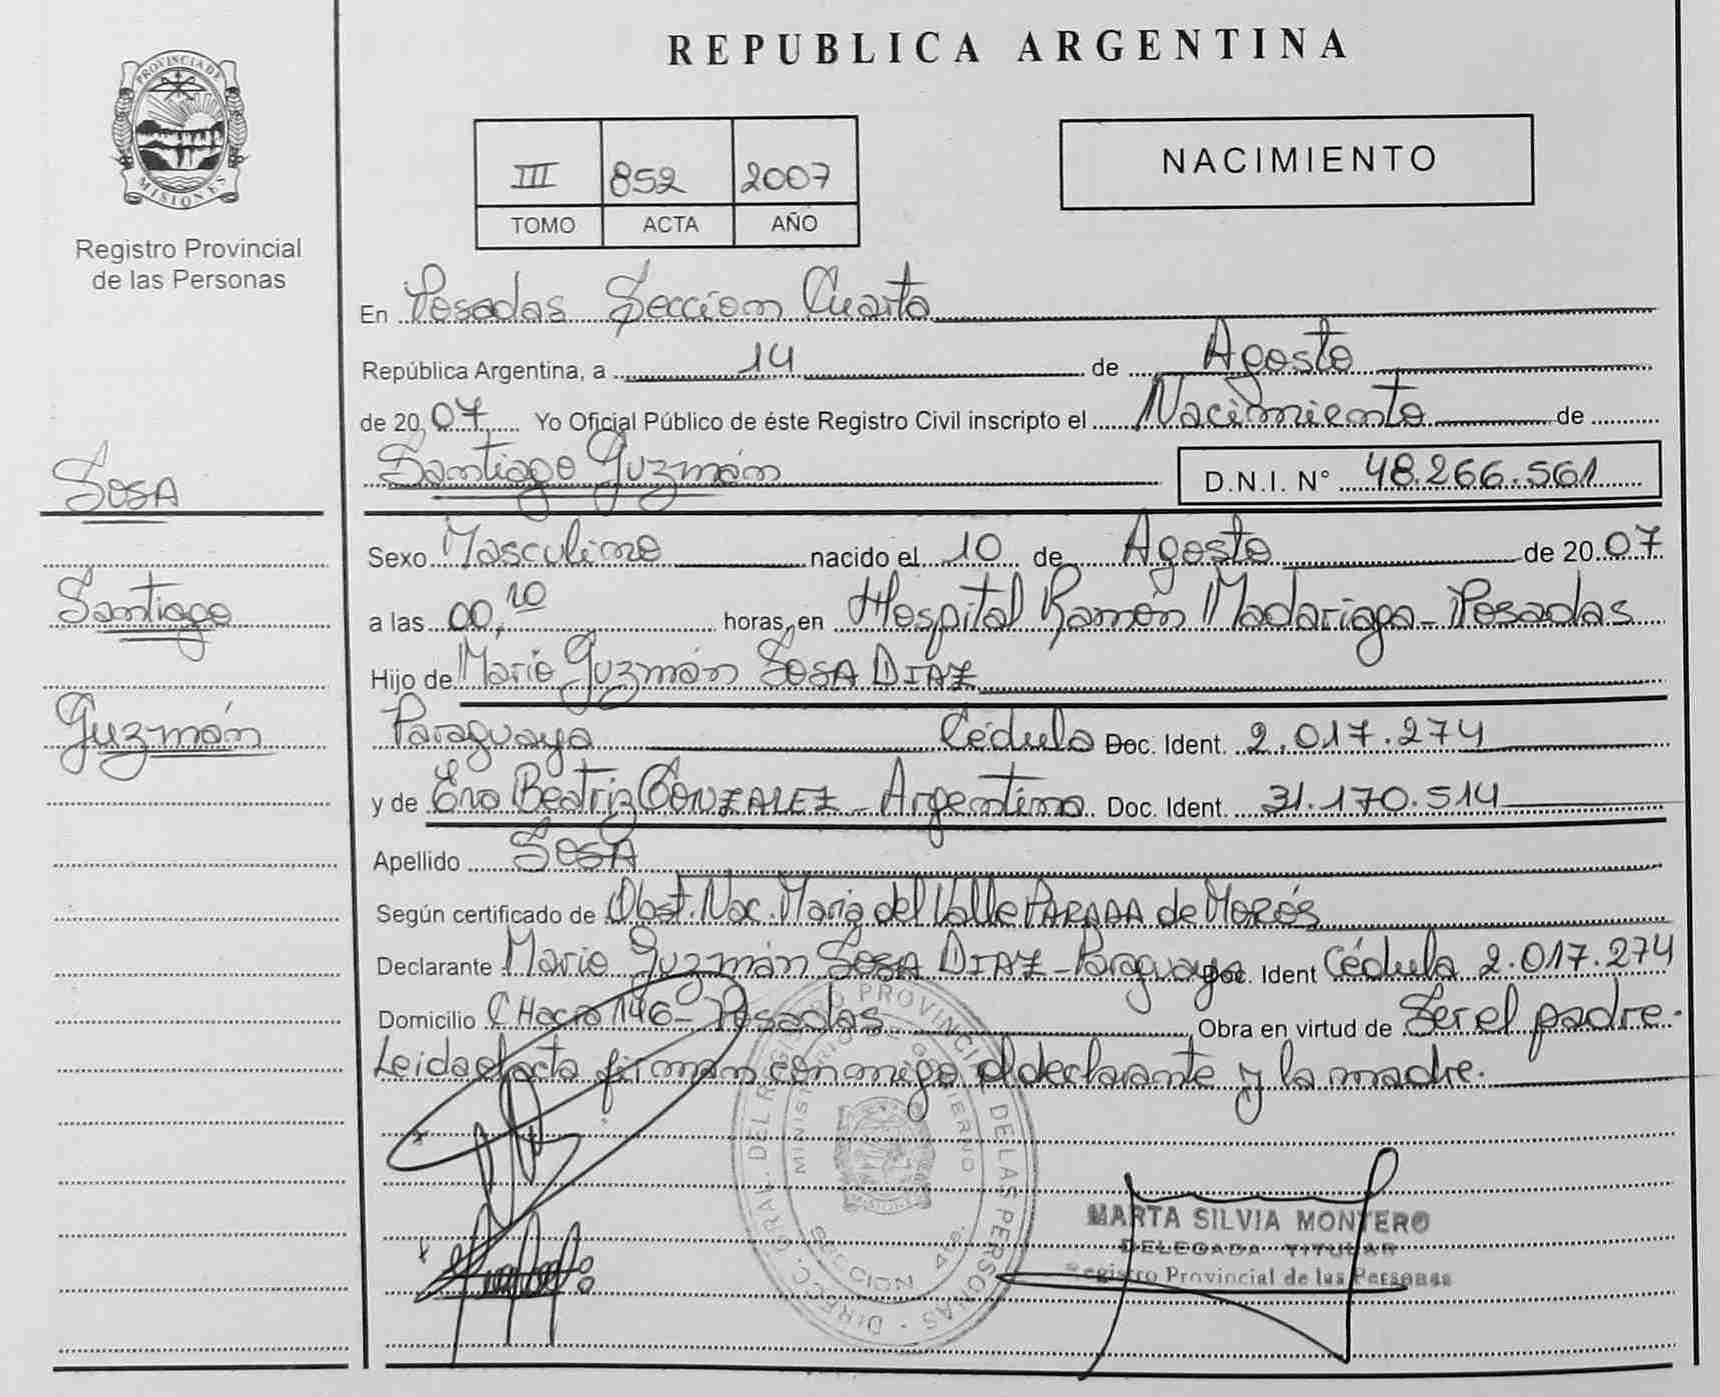 PROVINCIA DE
MISIONES
Registro Provincial
de las Personas
Sosa
Santiago
Guzmán
REPUBLICA ARGENTINA
III 852 2007
TOMO ACTA AÑO
NACIMIENTO
En Posadas Sección Cuarta
República Argentina, a 14 de Agosto
de 20 07 Yo Oficial Público de éste Registro Civil inscripto el Nacimiento de
Santiago Guzmán D.N.I. N° 48.266.561
Sexo Masculino nacido el 10 de Agosto de 20 07
a las 00,10 horas, en Hospital Ramón Madariaga - Posadas
Hijo de Mario Guzmán SOSA DIAZ
Paraguaya Cédula Doc. Ident. 2.017.274
y de Eva Beatriz GONZALEZ - Argentina Doc. Ident. 31.170.514
Apellido SOSA
Según certificado de Obst. Nac. Maria del Valle PARADA de MORÉS
Declarante Mario Guzmán SOSA DIAZ - Paraguaya Doc. Ident Cédula 2.017.274
Domicilio CHaco 146 - Posadas Obra en virtud de Ser el padre.
Leida el acta firman conmigo el declarante y la madre.
DIRECC. GRAL. DEL REGISTRO PROVINCIAL DE LAS PERSONAS
MINISTERIO DE GOBIERNO
SECCION 4ta.
MARTA SILVIA MONTERO
DELEGADA TITULAR
Registro Provincial de las Personas